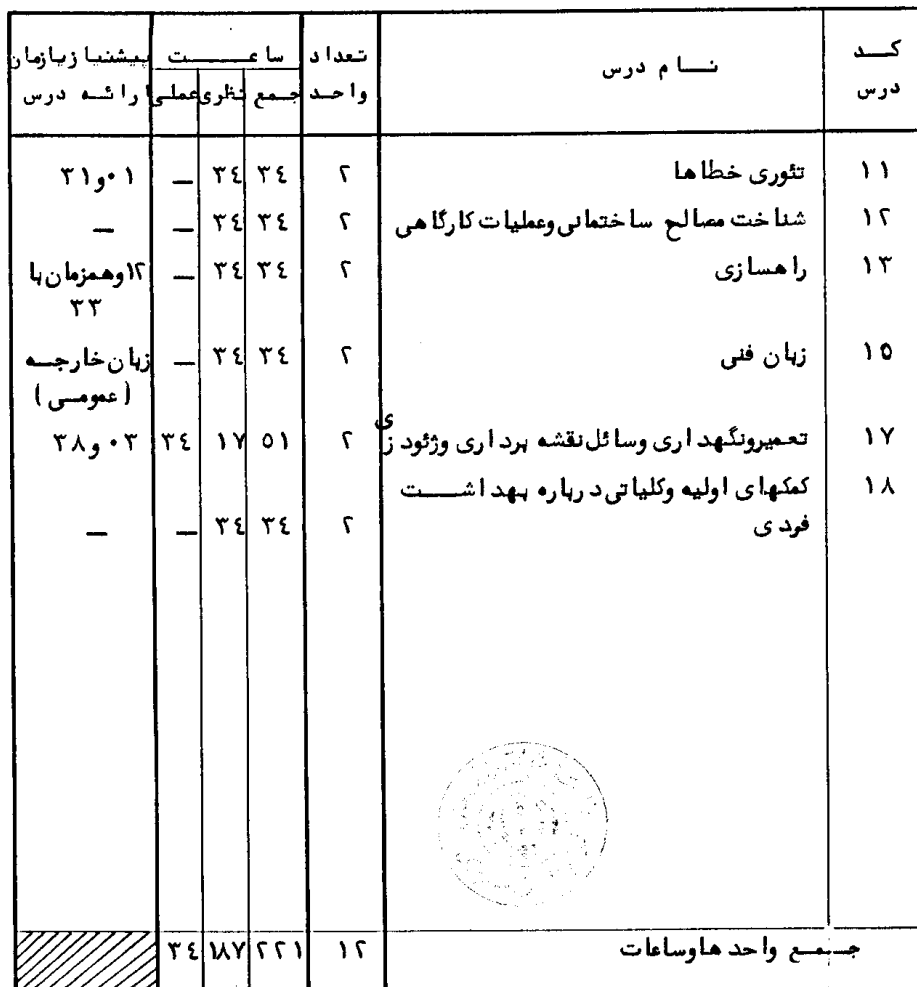 کد درس | نام درس | تعداد واحد | ساعت: جمع | نظری | عملی | پیشنیاز یازمان ارائه درس
۱۱ | تئوری خطاها | ۲ | ۳٤ | ۳٤ | — | ۰۱ و ۳۱
۱۲ | شناخت مصالح ساختمانی وعملیات کارگاهی | ۲ | ۳٤ | ۳٤ | — | —
۱۳ | راهسازی | ۲ | ۳٤ | ۳٤ | — | ۱۲ وهمزمان با
۳۳
۱۵ | زبان فنی | ۲ | ۳٤ | ۳٤ | — | زبان خارجه
(عمومی)
۱۷ | تعمیرونگهداری وسائل نقشه برداری وژئودزی | ۲ | ۵۱ | ۱۷ | ۳٤ | ۰۳ و ۳۸
۱۸ | کمکهای اولیه وکلیاتی درباره بهداشت
فردی | ۲ | ۳٤ | ۳٤ | — | —
جمع واحدهاوساعات | ۱۲ | ۲۲۱ | ۱۸۷ | ۳٤